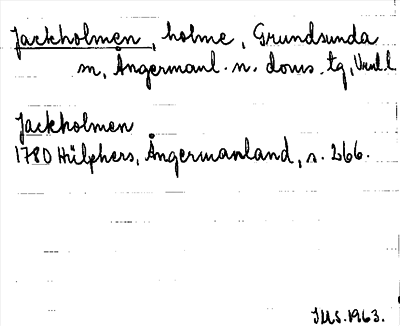 Jackholmen, holme, Grundsunda
sn, Ångermanl. n. doms. tg, Vnl. l
Jackholmen
1780 Hülphers, Ångermanland, s. 266.
IMS. 1963.